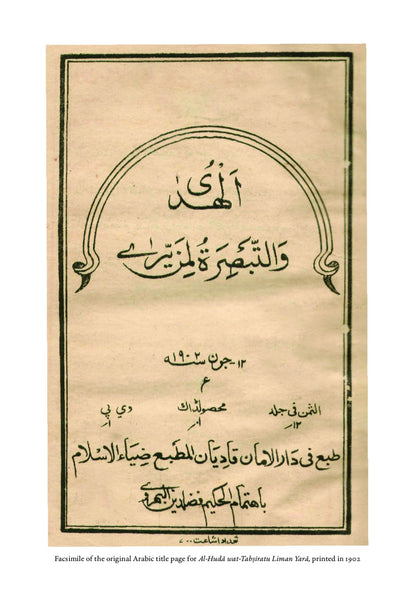 اَلْهُدٰى
وَالتَّبْصِرَةُ لِمَنْ يَّرٰى
١٢- جون سنه ١٩٠٢
ء
الثمن فی جلد محصولڈاک وی پی
١٢؍ ١؍ ١؍
طبع فی دار الامان قادیان المطبع ضیاء الاسلام
باهتمام الحکیم فضلدین البھیروی
تعداد اشاعت ٧٠٠
Facsimile of the original Arabic title page for Al-Hudā wat-Tabṣiratu Liman Yarā, printed in 1902